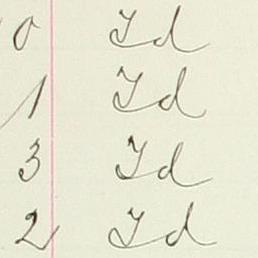 0 Id
1 Id
3 Id
2 Id